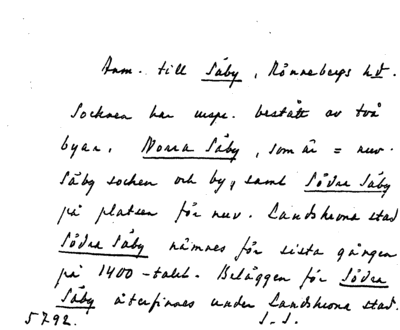 Anm. till Säby, Rönnebergs hd.
Socknen har urspr. bestått av två
byar, Norra Säby, som är = nuv.
Säby socken och by, samt Södra Säby
på platsen för nuv. Landskrona stad
Södra Säby nämnes för sista gången
på 1400-talet. Beläggen för Södra
Säby återfinnes under Landskrona stad.
5792. S.-S.